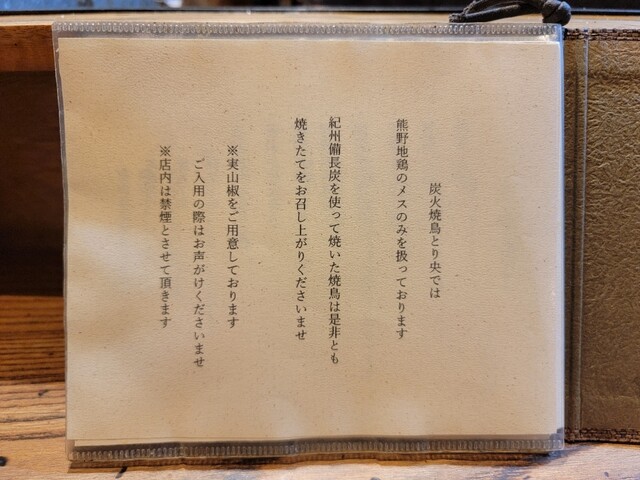 炭火焼鳥とり央では
熊野地鶏のメスのみを扱っております
紀州備長炭を使って焼いた焼鳥は是非とも
焼きたてをお召し上がりくださいませ
※実山椒をご用意しております
ご入用の際はお声がけくださいませ
※店内は禁煙とさせて頂きます